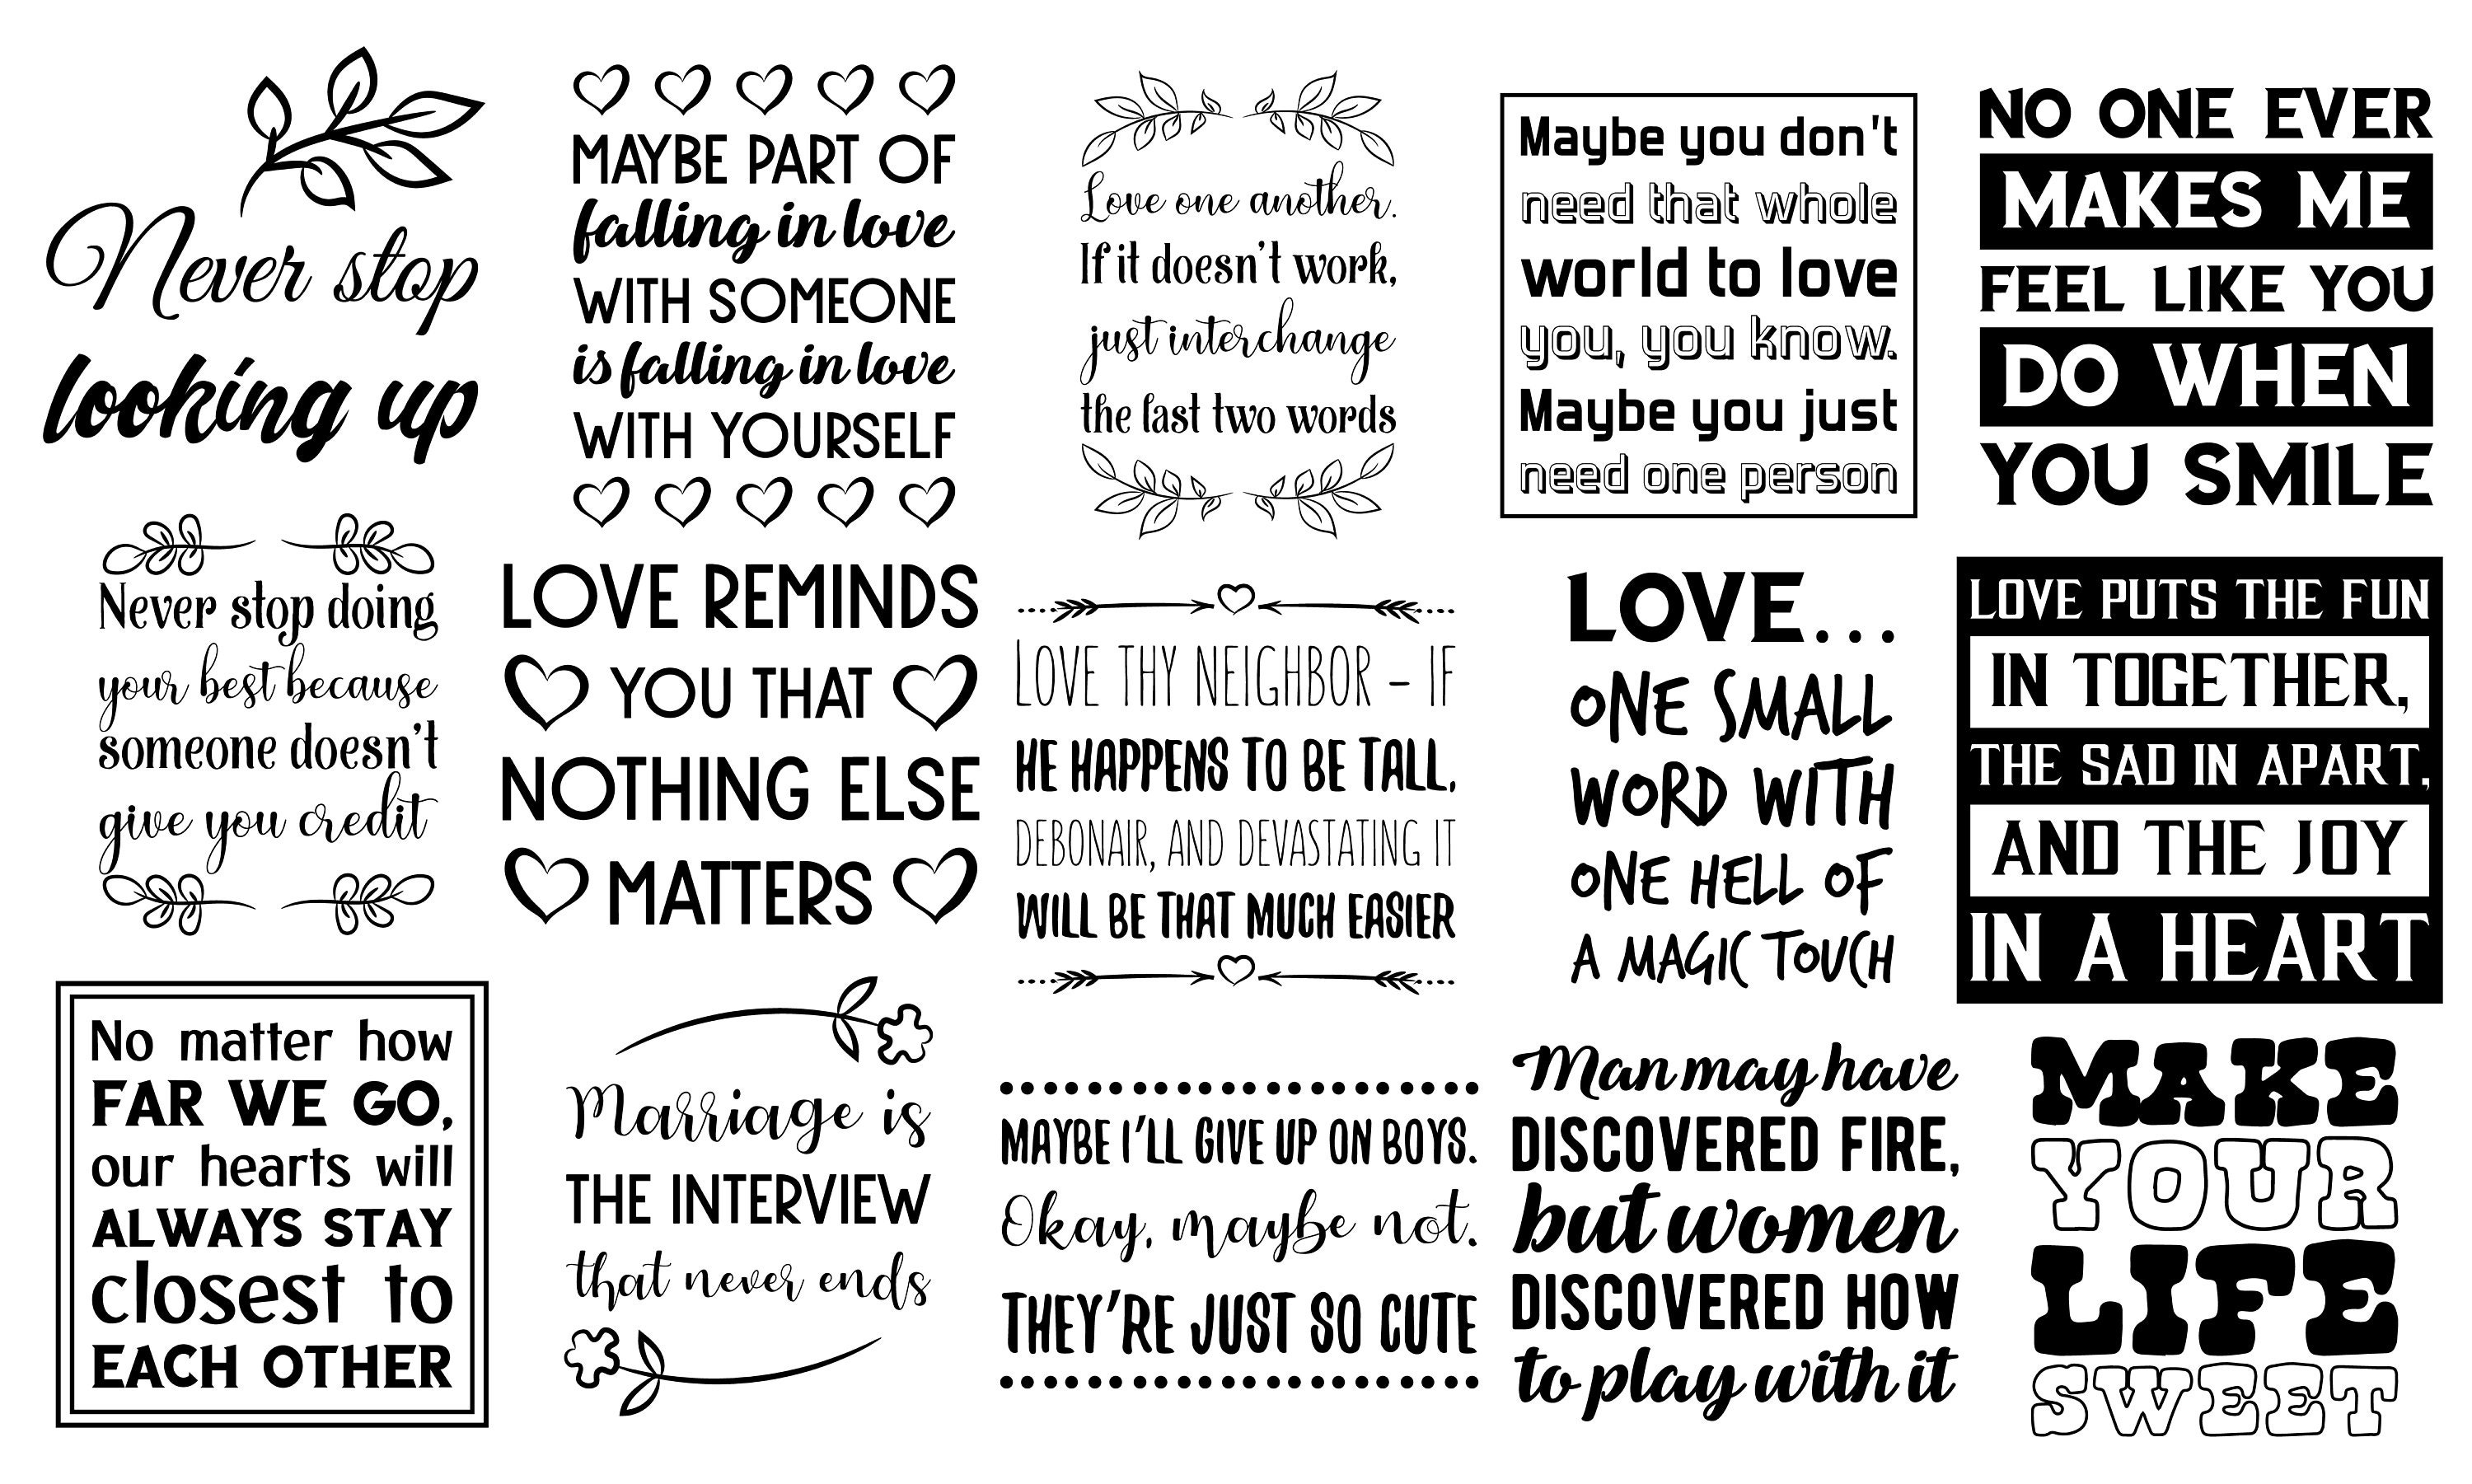 Never stop
looking up
MAYBE PART OF
falling in love
WITH SOMEONE
is falling in love
WITH YOURSELF
Love one another.
If it doesn't work,
just interchange
the last two words
Maybe you don't
need that whole
world to love
you, you know.
Maybe you just
need one person
NO ONE EVER
MAKES ME
FEEL LIKE YOU
DO WHEN
YOU SMILE
Never stop doing
your best because
someone doesn't
give you credit
LOVE REMINDS
YOU THAT
NOTHING ELSE
MATTERS
LOVE THY NEIGHBOR – IF
HE HAPPENS TO BE TALL,
DEBONAIR, AND DEVASTATING IT
WILL BE THAT MUCH EASIER
LOVE...
ONE SMALL
WORD WITH
ONE HELL OF
A MAGIC TOUCH
LOVE PUTS THE FUN
IN TOGETHER,
THE SAD IN APART,
AND THE JOY
IN A HEART
No matter how
FAR WE GO,
our hearts will
ALWAYS STAY
closest to
EACH OTHER
Marriage is
THE INTERVIEW
that never ends
MAYBE I'LL GIVE UP ON BOYS.
Okay, maybe not.
THEY'RE JUST SO CUTE
Man may have
DISCOVERED FIRE,
but women
DISCOVERED HOW
to play with it
MAKE
YOUR
LIFE
SWEET